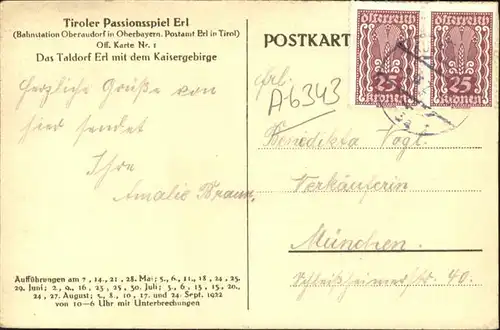 Tiroler Passionsspiel Erl
(Bahnstation Oberaudorf in Oberbayern. Postamt Erl in Tirol)
Off. Karte Nr. 1
Das Taldorf Erl mit dem Kaisergebirge
Herzliche Grüße von
hier sendet
Ihre
Amalie Braun.
Aufführungen am 7., 14., 21., 28. Mai; 5., 6., 11., 18., 24., 25.
29. Juni; 2., 9., 16., 23., 25., 30. Juli; 3., 6., 13., 15., 20.,
24., 27. August; 2., 8., 10., 17. und 24. Sept. 1922
von 10–6 Uhr mit Unterbrechungen
POSTKART
österreich
25
Kronen
österreich
25
Kronen
A-6343
Frl.
Benedikta Vogl.
Verkäuferin
München.
Schleißheimerstr. 40.